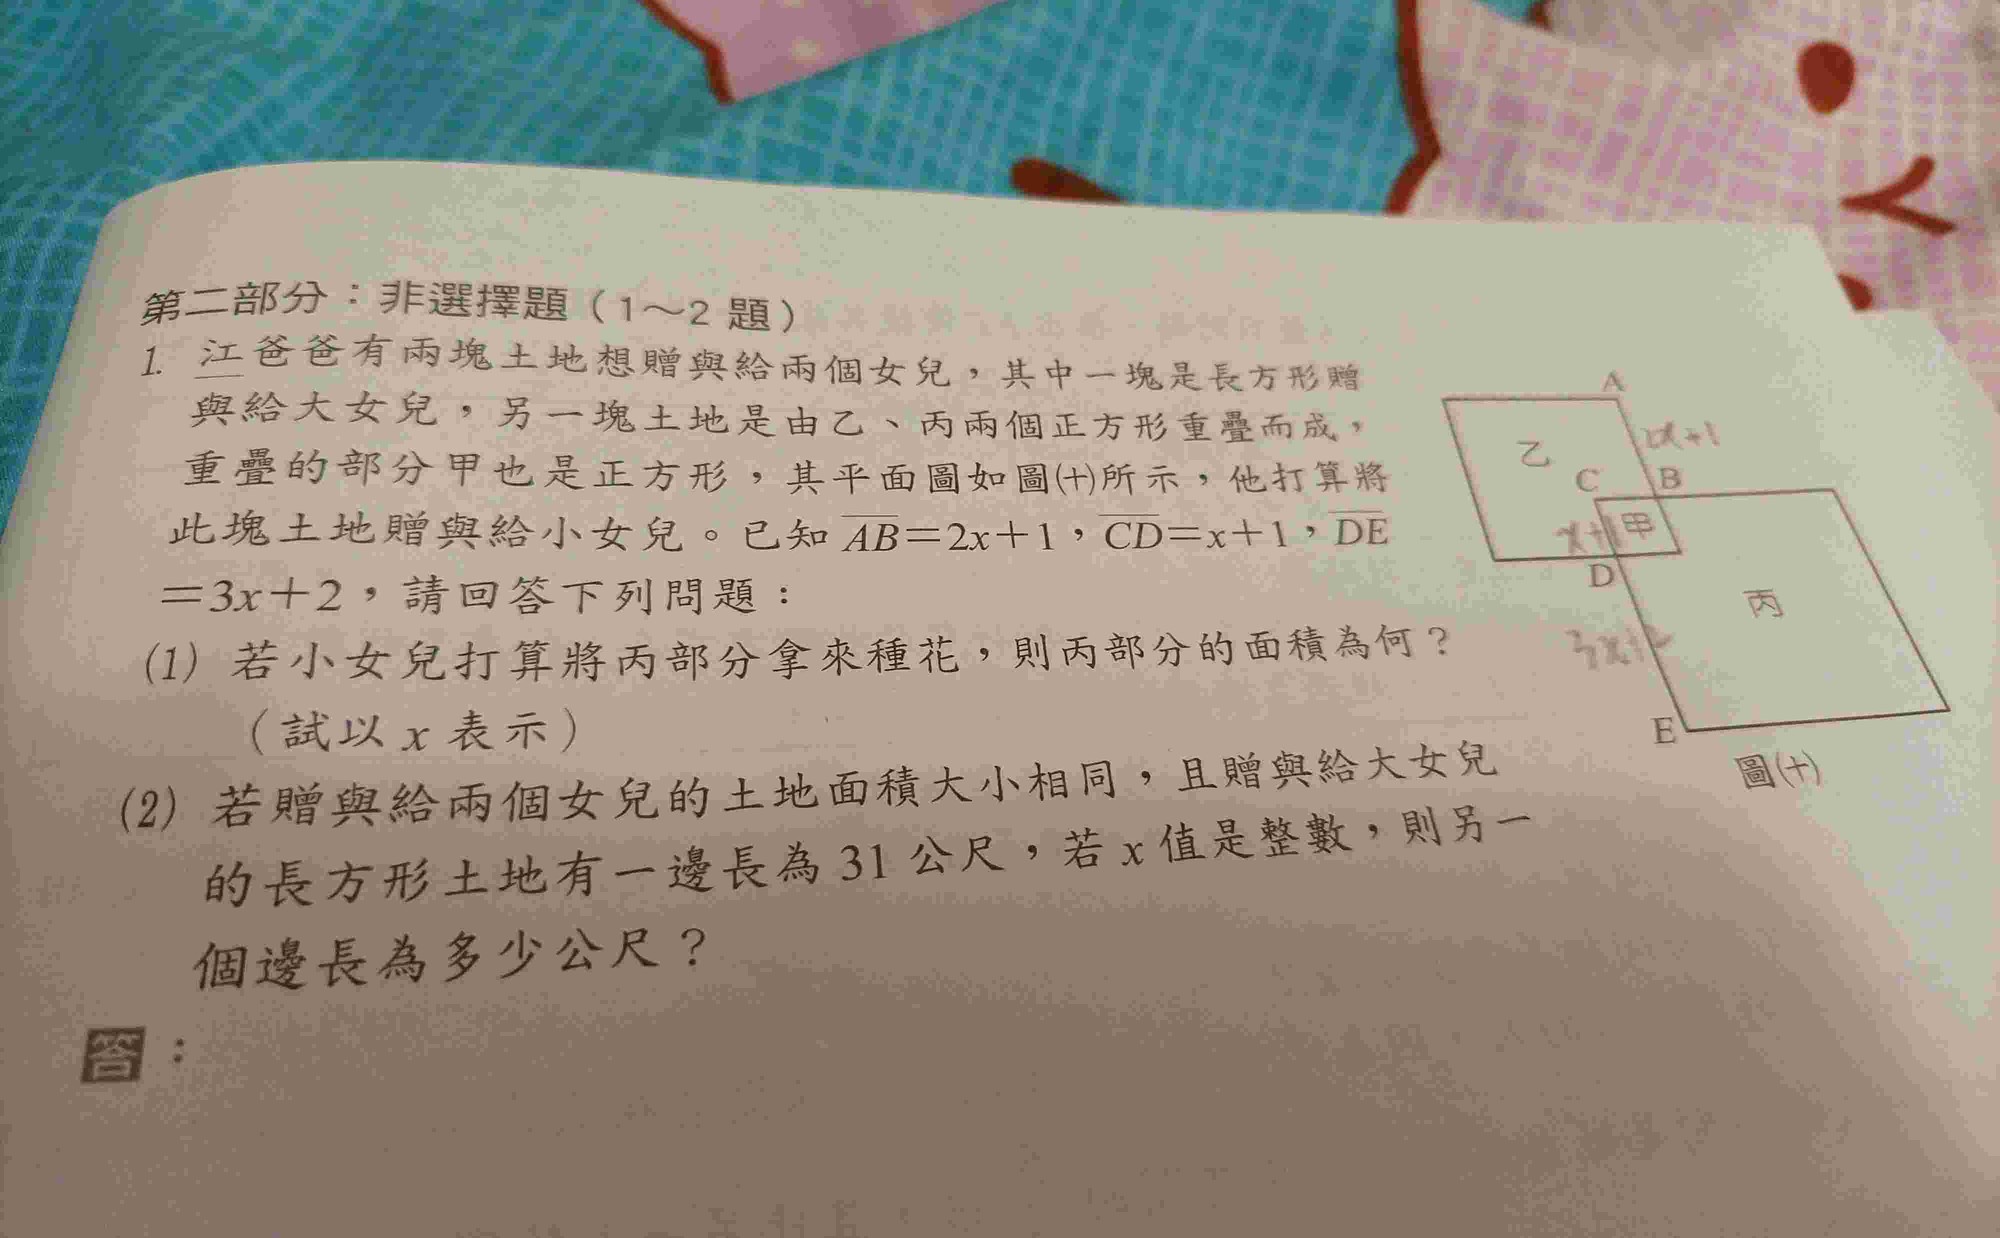 第二部分：非選擇題（1～2 題）
1. 江爸爸有兩塊土地想贈與給兩個女兒，其中一塊是長方形贈
與給大女兒，另一塊土地是由乙、丙兩個正方形重疊而成，
重疊的部分甲也是正方形，其平面圖如圖(十)所示，他打算將
此塊土地贈與給小女兒。已知 AB＝2x＋1，CD＝x＋1，DE
＝3x＋2，請回答下列問題：
(1) 若小女兒打算將丙部分拿來種花，則丙部分的面積為何？
（試以 x 表示）
(2) 若贈與給兩個女兒的土地面積大小相同，且贈與給大女兒
的長方形土地有一邊長為 31 公尺，若 x 值是整數，則另一
個邊長為多少公尺？
答：
A
2x+1
乙
C
B
x+1
甲
D
丙
3x+2
E
圖(十)